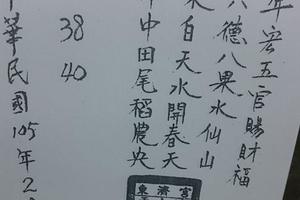 年客五官賜財福
六德八果水仙山
來自天水開春天
中中田尾稻農央
38 40
華民國105年2
東濟宮